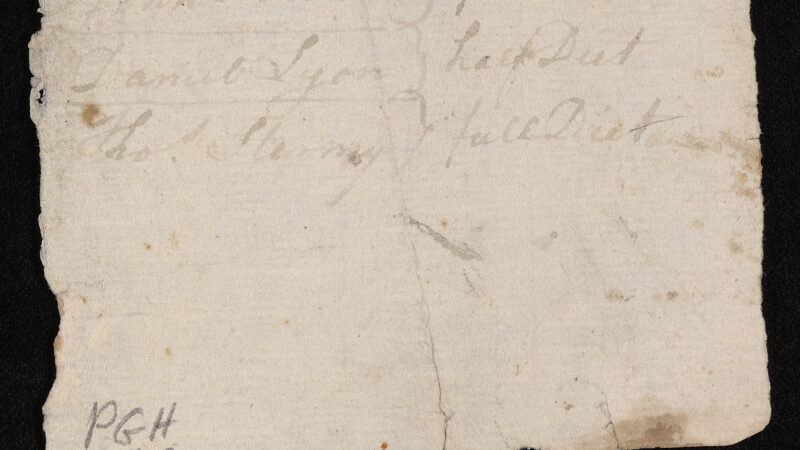 Daniel Lyon } half Diet
Tho.s Stermy } full Diet
PGH